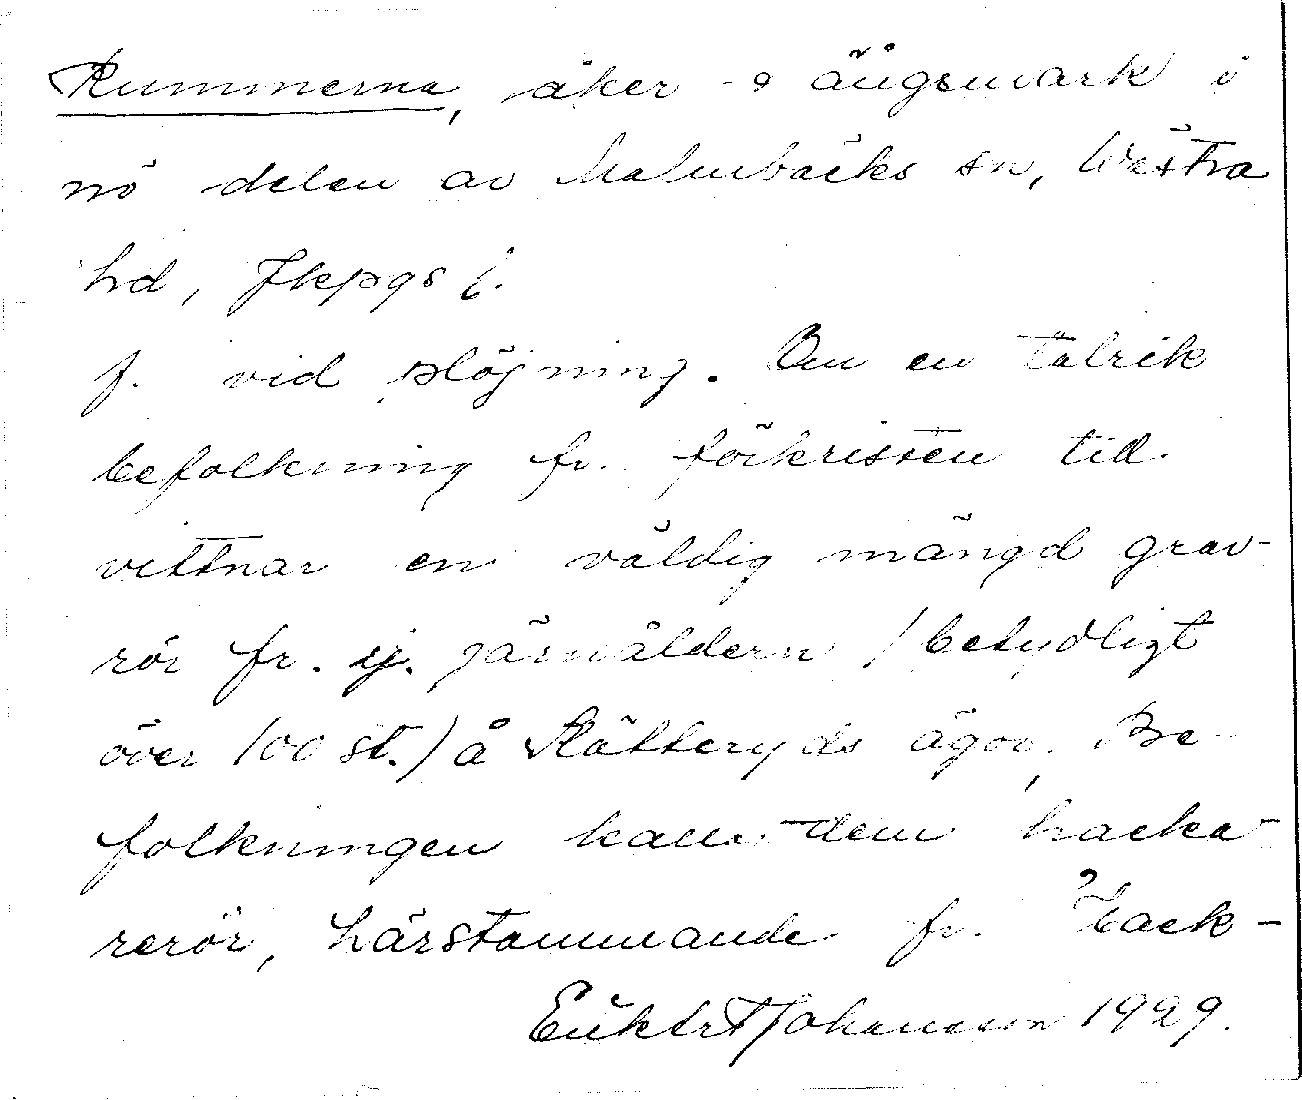 Rummerna, åker- o ängsmark i
nö delen av Malmbäcks sn, Västra
hd, Jkpgs l.
f. vid plöjning. Om en talrik
befolkning fr. förkristen tid
vittnar en väldig mängd grav-
rör fr. yj. järnåldern /betydligt
över 100 st.) å Slätteryds ägor. Be-
folkningen kallar dem hacka-
rerör, härstammande fr. "hack-
Johansson 1929.